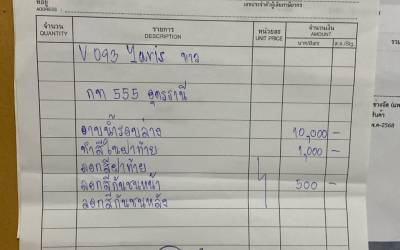 ที่อยู่
ADDRESS :
เลขประจำตัวผู้เสียภาษีอากร
จำนวน
QUANTITY
รายการ
DESCRIPTION
หน่วยละ
UNIT PRICE
จำนวนเงิน
AMOUNT
บาท/Baht
ส.ต./Stg.
V 093 Yaris ขาว
กท 555 อุดรธานี
อาบน้ำรอบล่าง 10,000 -
ทำสีในฝาท้าย 1,000 -
ลอกสีฝาท้าย
ลอกสีกันชนหน้า 500 -
ลอกสีกันชนหลัง